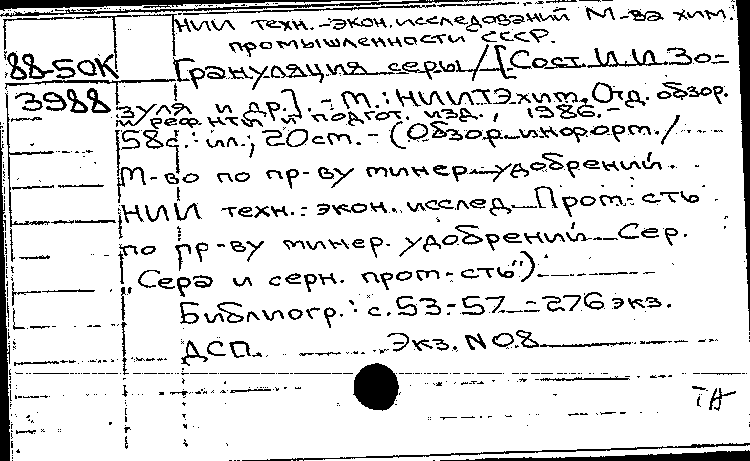 НИИ техн.-экон. исследований М-ва хим.
промышленности СССР.
88-50К
Грануляция серы / [Сост. И.И. Зо-
3988
зуля и др.]. - М.: НИИТЭхим, Отд. обзор.
и реф. нты и подгот. изд., 1986. -
58с.: ил.; 20ст. - (Обзор. информ. /
М-во по пр-ву минер. удобрений.
НИИ техн.-экон. исслед. Пром-сть
по пр-ву минер. удобрений. Сер.
„Сера и серн. пром-сть“).
Библиогр.: с. 53-57 - 276 экз.
ДСП. Экз. N 08
ТА